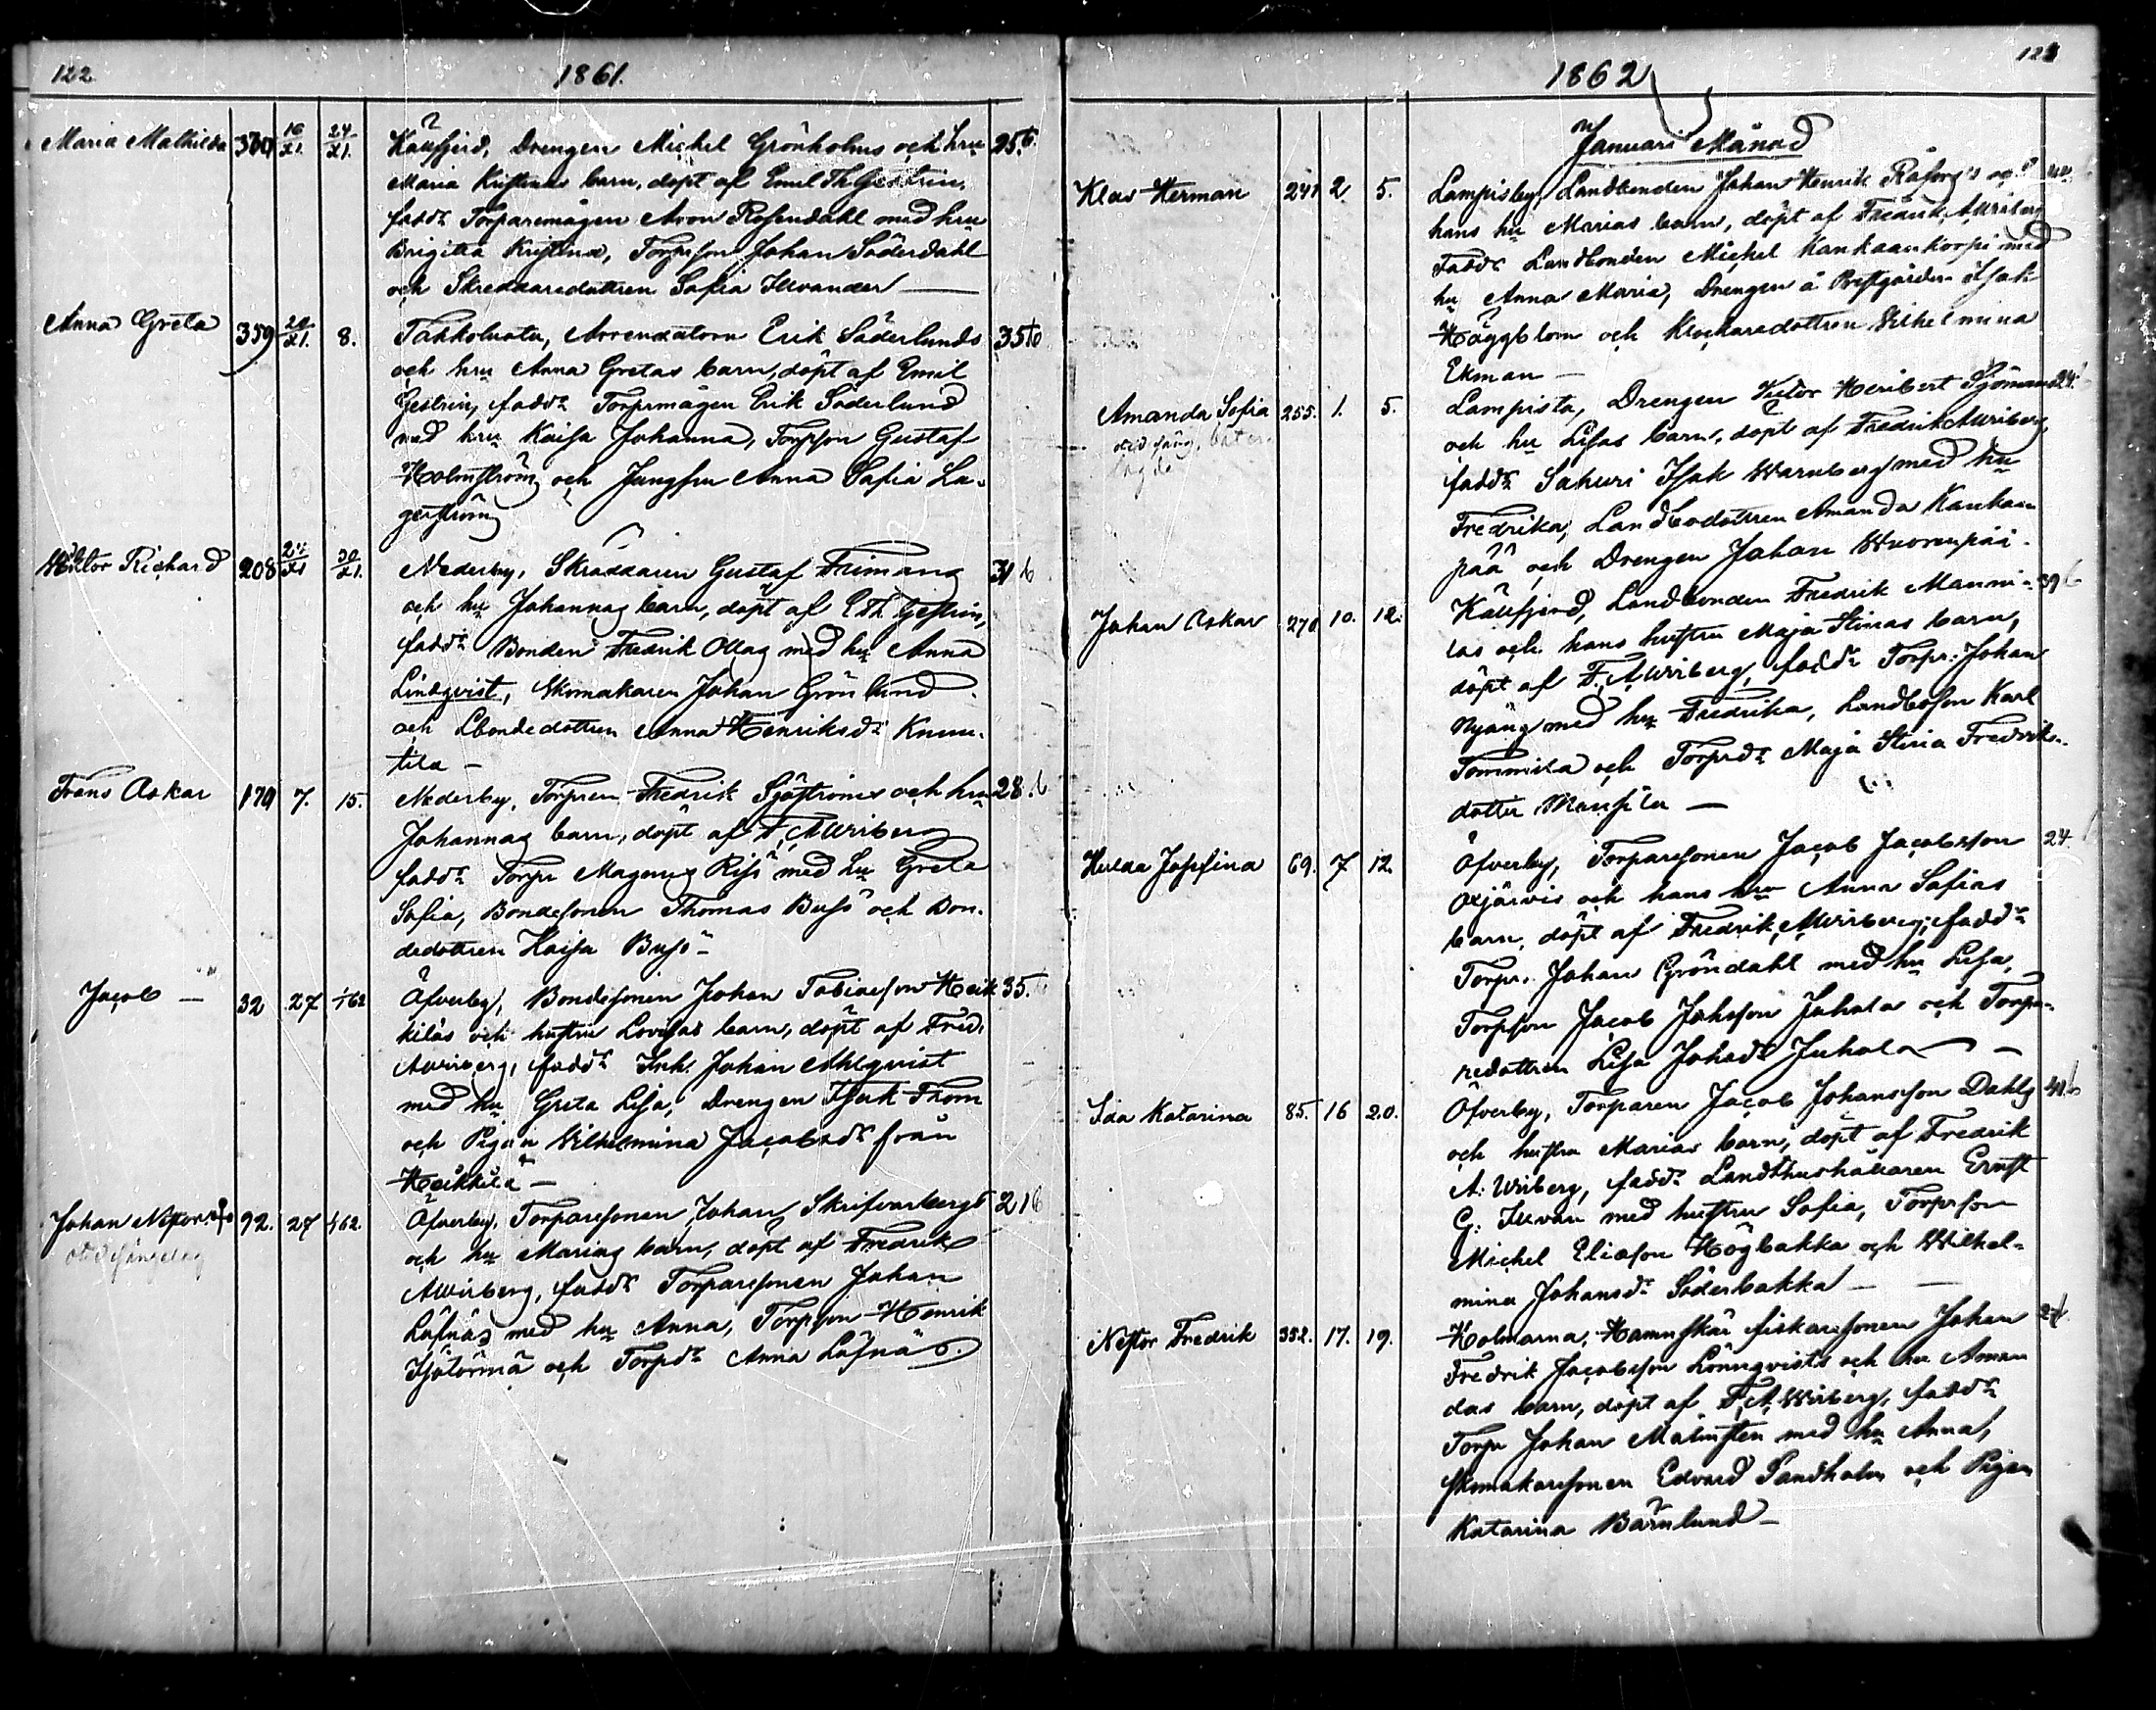 122.
1861.
Maria Mathilda 16/XI. 24/XI. Källfjerd, Drengen Michel Grönholms och hru 25.
Maria Kristinas barn, döpt af Emil Th Gestrin,
fadd: Torparemågen Aron Rosendahl med hru
Brigitta Kristina, Torpson Johan Söderdahl
och Skreddaredottren Sofia Illvander —
Anna Greta 359 8. Arrendatorn Erik Söderlunds 35
och hru Anna Gretas barn, döpt af Emil
Gestrin, fadd: Torpmågen Erik Söderlund
med hru Kaisa Johanna, Torpson Gustaf
Holmström och Jungfru Anna Sofia La-
gerström
Viktor Richard 208 30/XI. Nederby, Skräddaren Gustaf Frimans 31
och hu Johannas barn, döpt af E Th Gestrin,
fadd: Bonden Fredrik Ollas med hu Anna
Lindqvist, Skomakaren Johan Grönlund
och Lbondedottren Anna Henriksd: Knuu-
tila —
Frans Oskar 179 7. 15. Nederby, Torpren Fredrik Sjöströms och hru 28.
Johannas barn, döpt af F. A Wiberg
fadd: Torpr Magnus Risö med hu Greta
Sofia, Bondesonen Thomas Busö och Bon-
dedottren Kaisa Busö —
Jacob — 32 27 1/62 Öfverby, Bondesonen Johan Tobiasson Heik 35.
kiläs och hustru Lovisas barn, döpt af Fred.
A Wiberg, fadd: Inh. Johan Ahlqvist
med hu Greta Lisa, Drengen Isak From
och Pigan Vilhelmina Jacobsd: från
Heikkilä —
Johan Nestor 92. 27 1/62. Öfverby, Torparesonen Johan Skrifvarbergs 21
och hu Marias barn, döpt af Fredrik
A Wiberg, fadd: Torparesonen Johan
Löfnäs med hu Anna, Torpson Henrik
Isotörmä och Torpd: Anna Löfnäs.
123
1862
Januari Månad
Klas Herman 241 2. 5. Lampisby, Landbonden Johan Henrik och
hans hu Marias barn, döpt af Fredrik A Wiberg
Fadd: Landbonden Michel Kankaankorpi med
hu Anna Maria, Drengen å Prestgården Isak
Häggblom och Klockaredottren Vilhelmina
Ekman —
Amanda Sofia 255. 1. 5. Lampista, Drengen Victor Heribert Sjömans 24.
och hu Lisas barn, döpt af Fredrik A Wiberg,
fadd: Sahuri Isak Warnberg med hu
Fredrika, Landbodottren Amanda Kankaan
pää och Drengen Johan Wuorenpää.
Johan Oskar 270 10. 12. Källfjerd, Landbonden Fredrik Manni- 39
las och hans hustru Maja Stinas barn,
döpt af F. A Wiberg, fadd: Torpr: Johan
Nyäng med hu Fredrika, Landboson Karl
Tommila och Torpd: Maja Stina Fredriks-
dotter —
Hulda Josefina 69. 7 12. Öfverby, Torparesonen Jacob Jacobsson 24.
Oxjärvis och hans hru Anna Sofias
barn, döpt af Fredrik A Wiberg; fadd:
Torpr. Johan Gröndahl med hu Lisa,
Torpson Jacob Johsson Juhola och Torpa-
redottren Lisa Johsd: Juhola —
Ida Katarina 85. 16 20. Öfverby, Torparen Jacob Johansson Dahls
och hustru Marias barn, döpt af Fredrik
A. Wiberg, fadd: Landthushållaren Ernst
G. Illvan med hustru Sofia, Torpson
Michel Eliason Högbakka och Wilhel-
mina Johansd: Söderbakka —
Nestor Fredrik 352. 17. 19. Kolmarna, Hamnskär fiskaresonen Johan
Fredrik Jacobsson Lönnqvists och hu Aman
das barn, döpt af F. A Wiberg, fadd:
Torpr Johan Malmsten med hu Anna,
Skomakaresonen Edvard Sandholm och Pigan
Katarina Bärnlund —